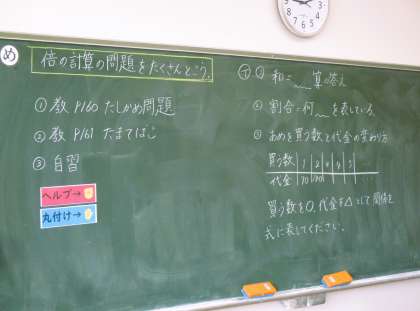 め
倍の計算の問題をたくさんとこう。
① 教 P160 たしかめ問題
② 教 P161 たまてばこ
③ 自習
ヘルプ→
丸付け→
① 和=__算の答え
② 割合=何__を表している。
③ あめを買う数と代金の変わり方
買う数 1 2 3 4 5
代金 70 140
買う数を○、代金を△として関係を
式に表してください。